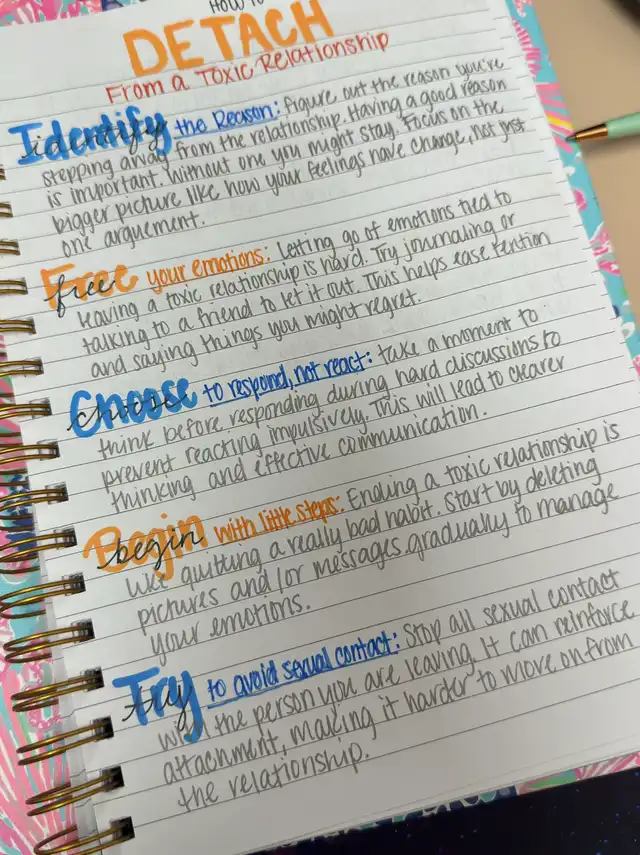 HOW TO
DETACH
From a Toxic Relationship
Identify the Reason: Figure out the reason you're
stepping away from the relationship. Having a good reason
is important. Without one you might stay. Focus on the
bigger picture like how your feelings have change, not just
one arguement.
Free your emotions: Letting go of emotions tied to
free
leaving a toxic relationship is hard. Try journaling or
talking to a friend to let it out. This helps ease tention
and saying things you might regret.
Choose to respond, not react: take a moment to
choose
think before responding during hard discussions to
prevent reacting impulsively. This will lead to clearer
thinking and effective communication.
Begin with little steps: Ending a toxic relationship is
begin
like quitting a really bad habit. Start by deleting
pictures and/or messages gradually to manage
your emotions.
Try to avoid sexual contact: Stop all sexual contact
try
w/ the person you are leaving. It can reinforce
attachment, making it harder to move on from
the relationship.